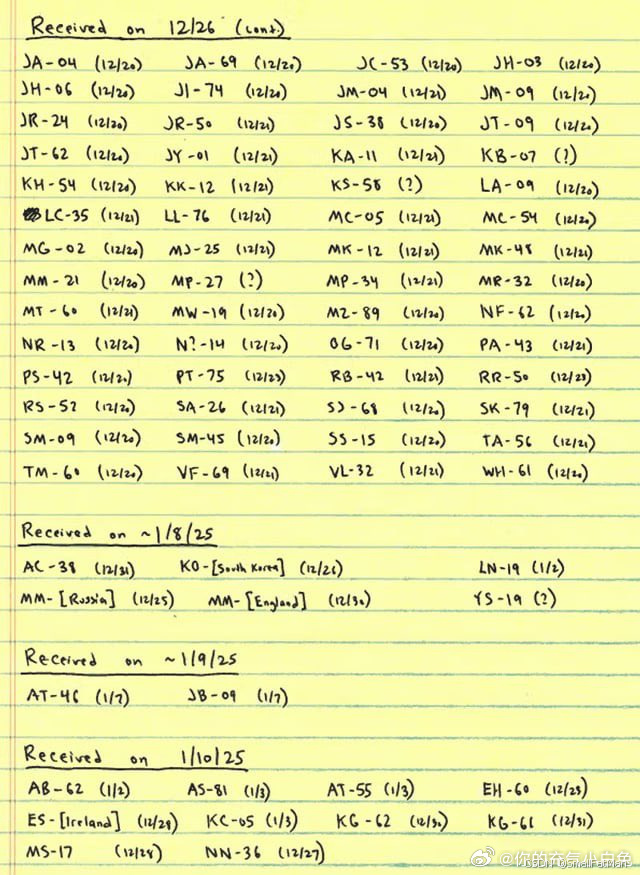 Received on 12/26 (cont.)
JA-04 (12/20) JA-69 (12/20) JC-53 (12/20) JH-03 (12/20)
JH-06 (12/20) JI-74 (12/20) JM-04 (12/21) JM-09 (12/20)
JR-24 (12/20) JR-50 (12/21) JS-38 (12/20) JT-09 (12/20)
JT-62 (12/20) JY-01 (12/21) KA-11 (12/21) KB-07 (?)
KH-54 (12/20) KK-12 (12/21) KS-58 (?) LA-09 (12/20)
LC-35 (12/21) LL-76 (12/21) MC-05 (12/21) MC-54 (12/20)
MG-02 (12/20) MJ-25 (12/21) MK-12 (12/21) MK-48 (12/21)
MM-21 (12/20) MP-27 (?) MP-34 (12/21) MR-32 (12/20)
MT-60 (12/21) MW-19 (12/20) MZ-89 (12/20) NF-62 (12/20)
NR-13 (12/20) N?-14 (12/20) OG-71 (12/20) PA-43 (12/21)
PS-42 (12/20) PT-75 (12/23) RB-42 (12/21) RR-50 (12/23)
RS-52 (12/20) SA-26 (12/21) SJ-68 (12/20) SK-79 (12/21)
SM-09 (12/20) SM-45 (12/20) SS-15 (12/20) TA-56 (12/21)
TM-60 (12/20) VF-69 (12/21) VL-32 (12/21) WH-61 (12/20)
Received on ~1/8/25
AC-38 (12/31) KO-[South Korea] (12/26) LN-19 (1/2)
MM-[Russia] (12/25) MM-[England] (12/30) YS-19 (?)
Received on ~1/9/25
AT-46 (1/7) JB-09 (1/7)
Received on 1/10/25
AB-62 (1/2) AS-81 (1/3) AT-55 (1/3) EH-60 (12/23)
ES-[Ireland] (12/28) KC-05 (1/3) KG-62 (12/30) KG-66 (12/31)
MS-17 (12/28) NN-36 (12/27)
@你的充气小白兔